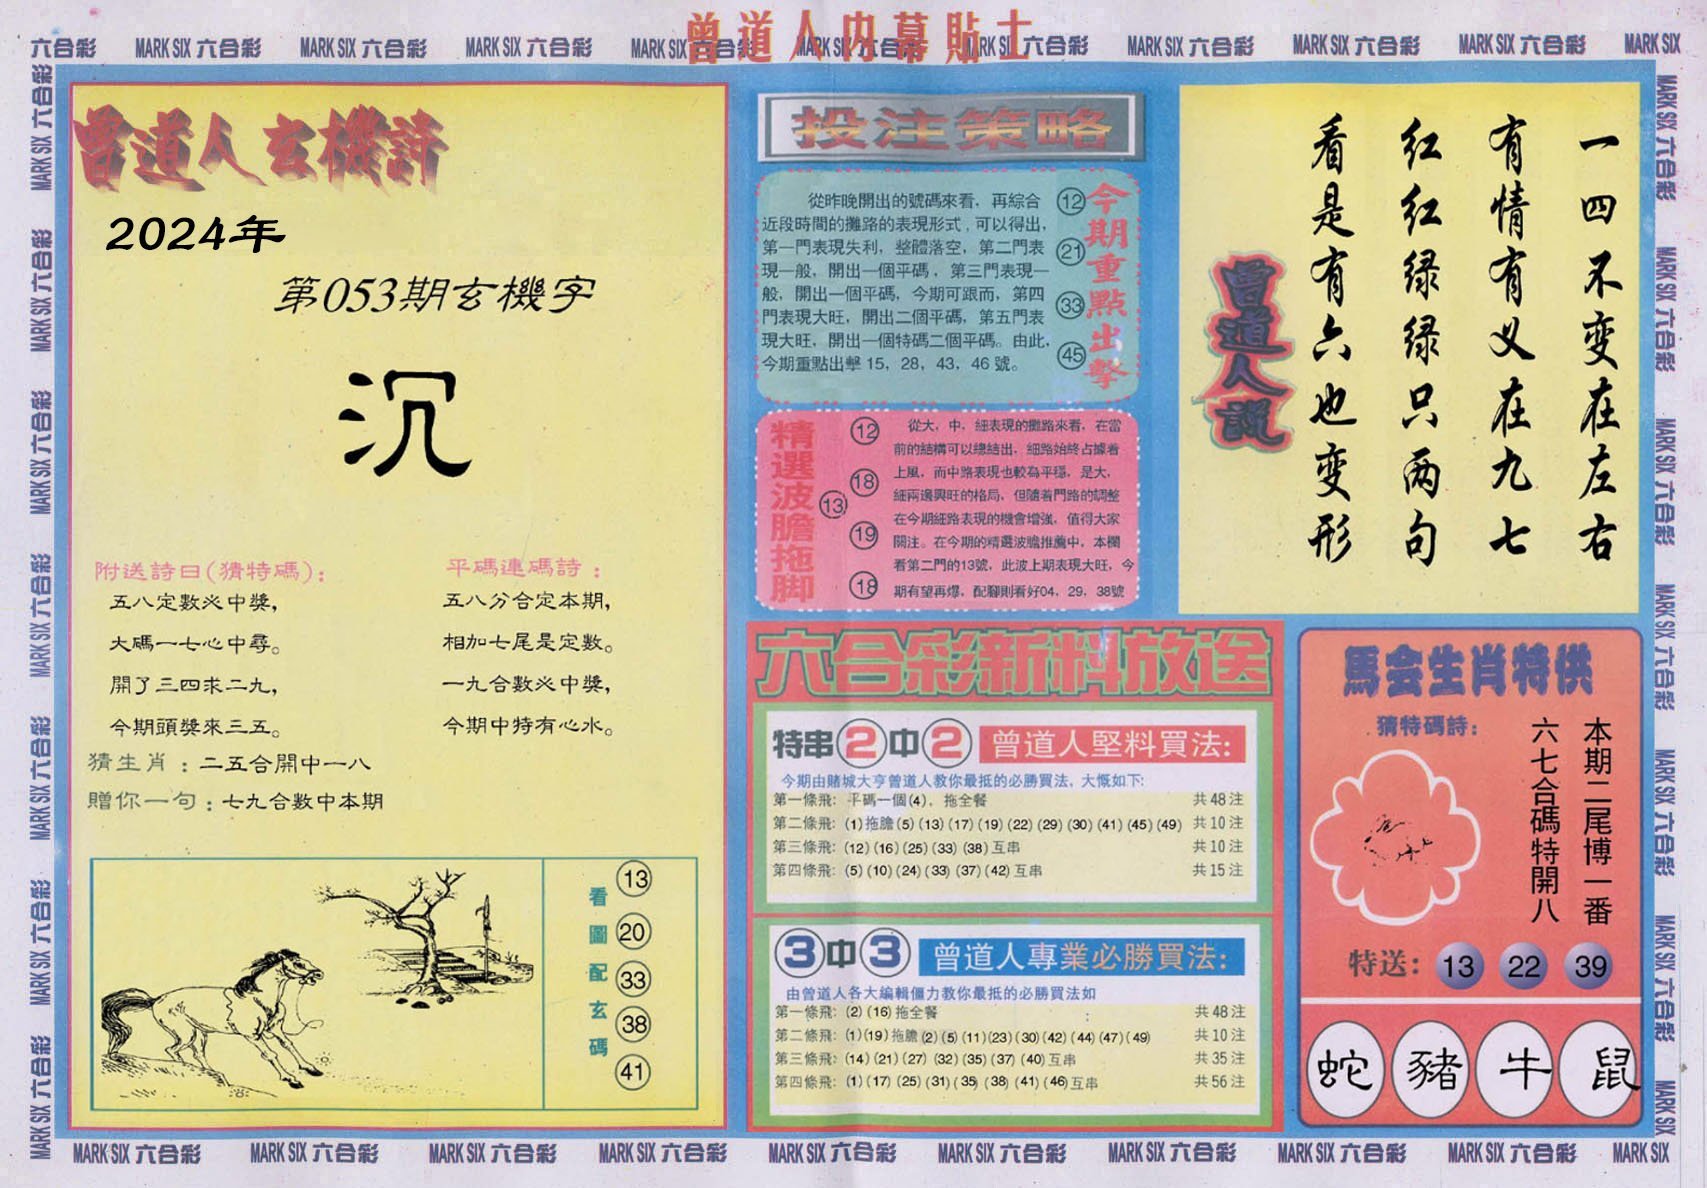 曾道人内幕貼士
六合彩 MARK SIX 六合彩 MARK SIX 六合彩 MARK SIX 六合彩 MARK SIX 六合彩 MARK SIX 六合彩 MARK SIX 六合彩 MARK SIX 六合彩 MARK SIX 六合彩 MARK SIX 六合彩 MARK SIX
曾道人玄機詩
2024年
第053期玄機字
沉
附送詩曰(猜特碼):
五八定數必中獎,
大碼一七心中尋。
開了三四求二九,
今期頭獎來三五。
平碼連碼詩:
五八分合定本期,
相加七尾是定數。
一九合數必中獎,
今期中特有心水。
猜生肖:二五合開中一八
贈你一句:七九合數中本期
看圖配玄碼
13
20
33
38
41
投注策略
從昨晚開出的號碼來看，再綜合
近段時間的攤路的表現形式,可以得出,
第一門表現失利，整體落空，第二門表
現一般，開出一個平碼，第三門表現一
般，開出一個平碼，今期可跟而，第四
門表現大旺，開出二個平碼，第五門表
現大旺，開出一個特碼二個平碼。由此,
今期重點出擊 15，28，43，46 號。
12
21
33
45
今期重點出擊
精選波膽拖脚
12
18
13
19
18
從大，中，細表現的攤路來看，在當
前的結構可以總結出，細路始終占據着
上風，而中路表現也較為平穩，是大，
細兩邊興旺的格局，但隨着門路的調整
在今期細路表現的機會增強，值得大家
關注。在今期的精選波膽推薦中，本欄
看第二門的13號，此波上期表現大旺，今
期有望再爆，配腳則看好04，29，38號
曾道人說
一四不变在左右
有情有义在九七
红红绿绿只两句
看是有六也变形
六合彩新料放送
特串2中2 曾道人堅料買法:
今期由賭城大亨曾道人教你最抵的必勝買法，大慨如下:
第一條飛: 平碼一個(4)，拖全餐 共48注
第二條飛: (1)拖膽(5)(13)(17)(19)(22)(29)(30)(41)(45)(49) 共10注
第三條飛: (12)(16)(25)(33)(38)互串 共10注
第四條飛: (5)(10)(24)(33)(37)(42)互串 共15注
3中3 曾道人專業必勝買法:
由曾道人各大編輯僵力教你最抵的必勝買法如
第一條飛: (2)(16)拖全餐 共48注
第二條飛: (1)(19)拖膽(2)(5)(11)(23)(30)(42)(44)(47)(49) 共10注
第三條飛: (14)(21)(27)(32)(35)(37)(40)互串 共35注
第四條飛: (1)(17)(25)(31)(35)(38)(41)(46)互串 共56注
馬会生肖特供
猜特碼詩:
本期二尾博一番
六七合碼特開八
特送: 13 22 39
蛇 豬 牛 鼠
MARK SIX 六合彩 MARK SIX 六合彩 MARK SIX 六合彩 MARK SIX 六合彩 MARK SIX 六合彩 MARK SIX 六合彩 MARK SIX 六合彩 MARK SIX 六合彩 MARK SIX 六合彩 MARK SIX
MARK SIX 六合彩 MARK SIX 六合彩 MARK SIX 六合彩 MARK SIX 六合彩 MARK SIX 六合彩 MARK SIX 六合彩 MARK SIX 六合彩
MARK SIX 六合彩 MARK SIX 六合彩 MARK SIX 六合彩 MARK SIX 六合彩 MARK SIX 六合彩 MARK SIX 六合彩 MARK SIX